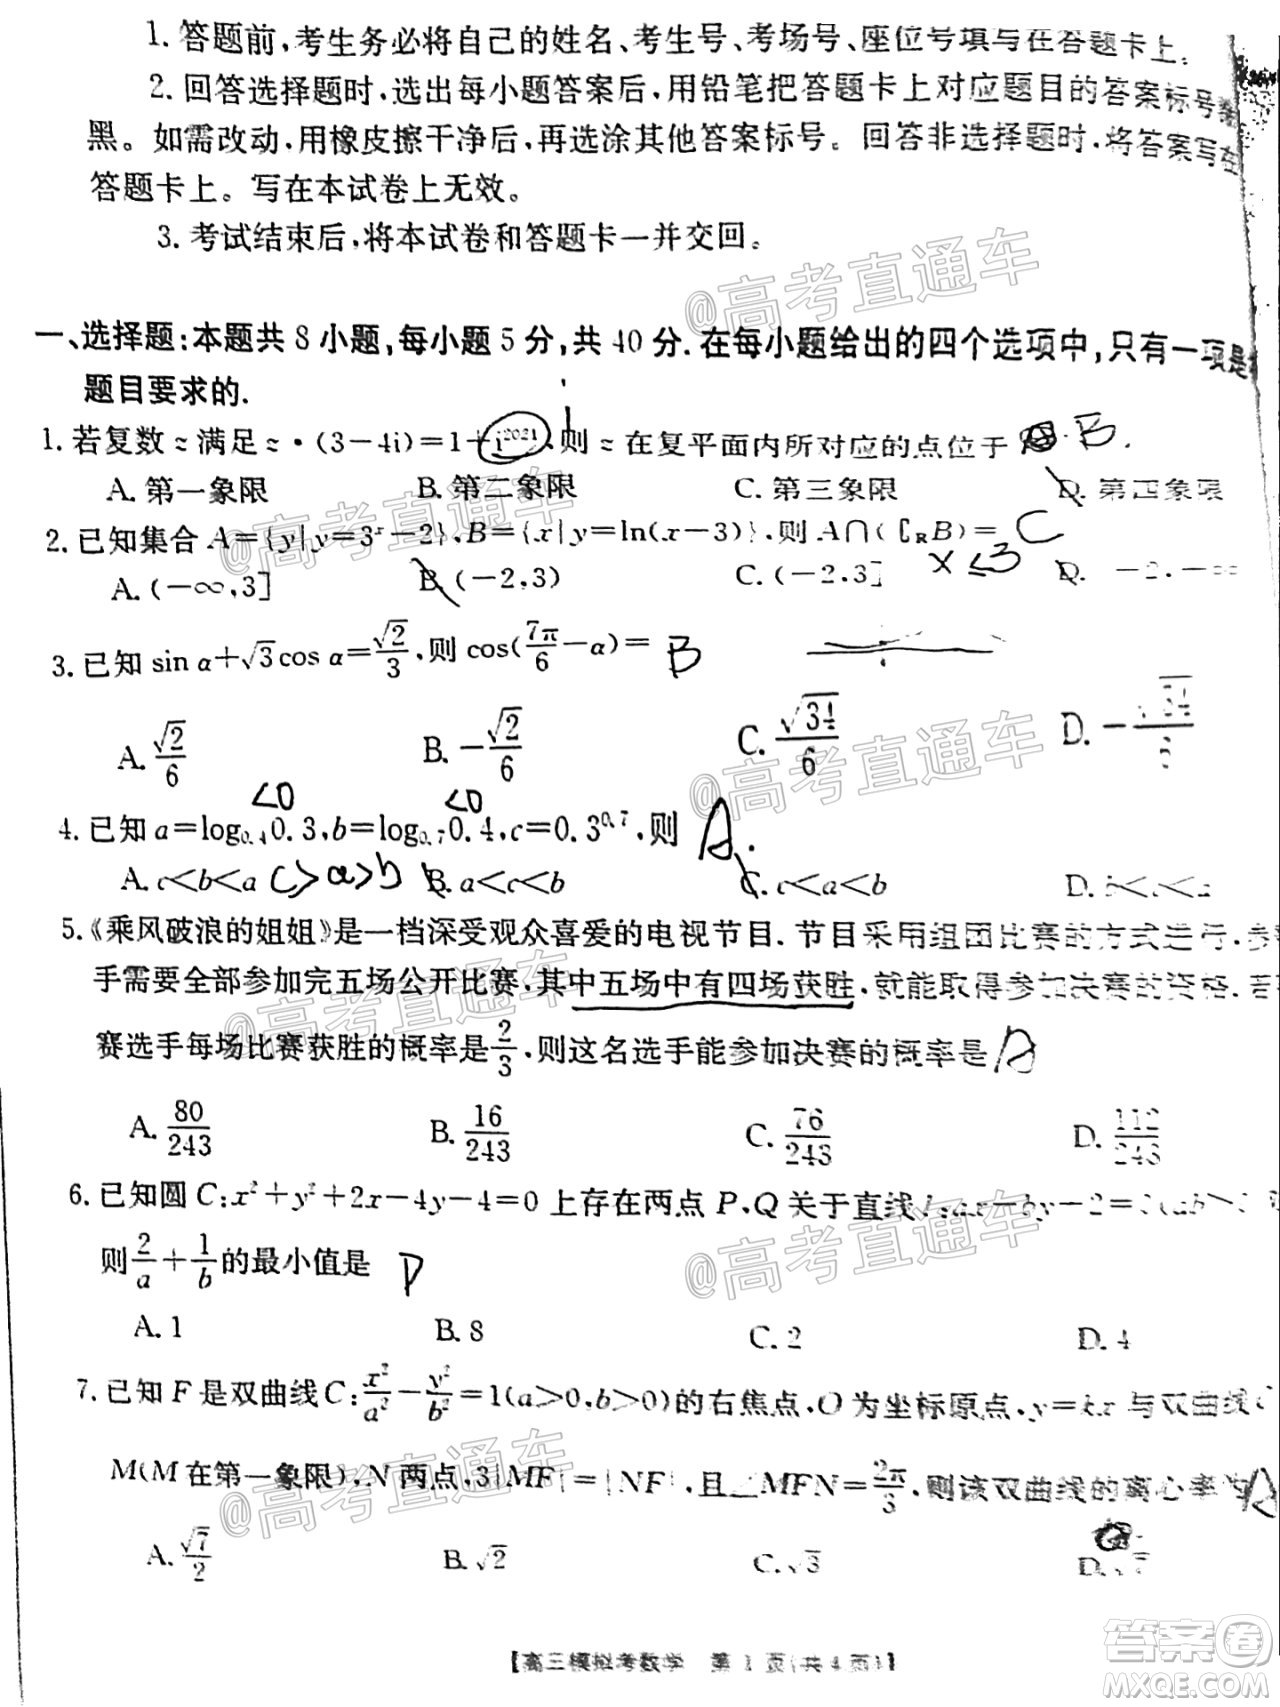 1. 答题前,考生务必将自己的姓名、考生号、考场号、座位号填写在答题卡上。
2. 回答选择题时,选出每小题答案后,用铅笔把答题卡上对应题目的答案标号
黑。如需改动,用橡皮擦干净后,再选涂其他答案标号。回答非选择题时,将答案写在
答题卡上。写在本试卷上无效。
3. 考试结束后,将本试卷和答题卡一并交回。
@高考直通车
一、选择题:本题共8小题,每小题5分,共40分.在每小题给出的四个选项中,只有一项是
题目要求的.
1. 若复数z满足z·(3-4i)=1+i²⁰²¹,则z在复平面内所对应的点位于 B.
A. 第一象限 B. 第二象限 C. 第三象限 D. 第四象限
@高考直通车
2. 已知集合A={y|y=3ˣ-2},B={x|y=ln(x-3)},则A∩(∁ʀB)= C
A. (-∞,3] B. (-2,3) C. (-2,3] x≤3 D.
3. 已知 sin α+√3cos α=√2/3,则 cos(7π/6-α)= B
A. √2/6 B. -√2/6 C. √34/6 D. -√34/6
@高考直通车
<0 <0
4. 已知a=log₀.₄0.3,b=log₀.₇0.4,c=0.3⁰·⁷,则 A.
A. c<b<a c>a>b B. a<c<b C. c<a<b D. b<c<a
5.《乘风破浪的姐姐》是一档深受观众喜爱的电视节目.节目采用组团比赛的方式进行,参
手需要全部参加完五场公开比赛,其中五场中有四场获胜,就能取得参加决赛的资格.若
@高考直通车
赛选手每场比赛获胜的概率是2/3,则这名选手能参加决赛的概率是 A
A. 80/243 B. 16/243 C. 76/243 D. 112/243
6. 已知圆C:x²+y²+2x-4y-4=0上存在两点P,Q关于直线l:ax-by-2=0(ab>
则2/a+1/b的最小值是 D
@高考直通车
A. 1 B. 8 C. 2 D. 4
7. 已知F是双曲线C:x²/a²-y²/b²=1(a>0,b>0)的右焦点,O为坐标原点,y=kx与双曲线C
M(M在第一象限),N两点,3|MF|=|NF|,且∠MFN=2π/3,则该双曲线的离心率为 A
@高考直通车
A. √7/2 B. √2 C. √3 D.
【高三模拟考数学 第1页(共4页)】
答案卷
MXQE.COM